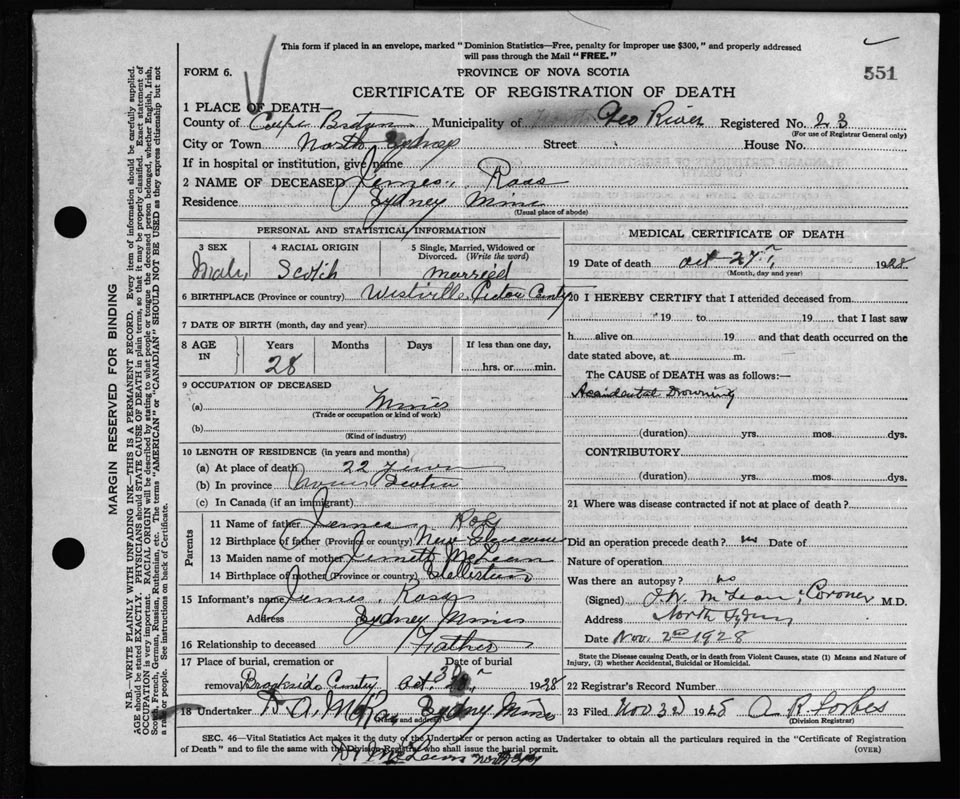 This form if placed in an envelope, marked "Dominion Statistics—Free, penalty for improper use $300," and properly addressed
will pass through the Mail "FREE."
551
FORM 6.
PROVINCE OF NOVA SCOTIA
CERTIFICATE OF REGISTRATION OF DEATH
1 PLACE OF DEATH—
County of Cape Breton Municipality of Geo River Registered No. 23
(For use of Registrar General only)
City or Town North Sydney Street House No.
If in hospital or institution, give name
2 NAME OF DECEASED James Ross
Residence Sydney Mines
(Usual place of abode)
PERSONAL AND STATISTICAL INFORMATION
3 SEX 4 RACIAL ORIGIN 5 Single, Married, Widowed or
Divorced. (Write the word)
Male Scotch married
6 BIRTHPLACE (Province or country) Westville Pictou County
7 DATE OF BIRTH (month, day and year)
8 AGE IN Years Months Days If less than one day,
28 hrs. or min.
9 OCCUPATION OF DECEASED
(a) Miner
(Trade or occupation or kind of work)
(b)
(Kind of industry)
10 LENGTH OF RESIDENCE (in years and months)
(a) At place of death 22 years
(b) In province Nova Scotia
(c) In Canada (if an immigrant)
Parents
11 Name of father James Ross
12 Birthplace of father (Province or country) New Glasgow
13 Maiden name of mother McLean
14 Birthplace of mother (Province or country) Stellarton
15 Informant's name James Ross
Address Sydney Mines
16 Relationship to deceased Father
17 Place of burial, cremation or Date of burial
removal Brookside Cemetery Oct. 30 1928
18 Undertaker A. McKay Sydney Mines
(Name and address)
MEDICAL CERTIFICATE OF DEATH
19 Date of death Oct 27 1928
(Month, day and year)
20 I HEREBY CERTIFY that I attended deceased from
19 to 19 that I last saw
h alive on 19 and that death occurred on the
date stated above, at m.
The CAUSE of DEATH was as follows:—
Accidental Drowning
(duration) yrs. mos. dys.
CONTRIBUTORY
(duration) yrs. mos. dys.
21 Where was disease contracted if not at place of death?
Did an operation precede death? Date of
Nature of operation
Was there an autopsy? no
(Signed) McLean, Coroner M.D.
Address North Sydney
Date Nov. 2nd 1928
State the Disease causing Death, or in death from Violent Causes, state (1) Means and Nature of
Injury, (2) whether Accidental, Suicidal or Homicidal.
22 Registrar's Record Number
23 Filed Nov 3d 1928 A R Forbes
(Division Registrar)
SEC. 46—Vital Statistics Act makes it the duty of the Undertaker or person acting as Undertaker to obtain all the particulars required in the "Certificate of Registration
of Death" and to file the same with the Division Registrar who shall issue the burial permit.
(OVER)
MARGIN RESERVED FOR BINDING
N.B.—WRITE PLAINLY WITH UNFADING INK—THIS IS A PERMANENT RECORD. Every item of information should be carefully supplied.
AGE should be stated EXACTLY. PHYSICIANS should STATE CAUSE OF DEATH in plain terms, so that it may be properly classified. Exact statement of
OCCUPATION is very important. RACIAL ORIGIN will be described by stating to what people or tongue the deceased person belonged, whether English, Irish,
Scotch, French, German, Russian, Ruthenian, etc. The terms "AMERICAN" or "CANADIAN" SHOULD NOT BE USED as they express citizenship but not
a race or people. See instructions on back of Certificate.